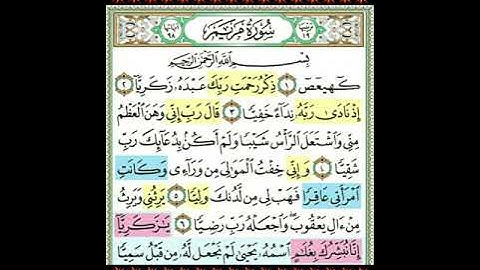 سُورَةُ مَرْيَمَ
بِسْمِ اللَّهِ الرَّحْمَٰنِ الرَّحِيمِ
كهيعص ١ ذِكْرُ رَحْمَتِ رَبِّكَ عَبْدَهُ زَكَرِيَّا ٢
إِذْ نَادَىٰ رَبَّهُ نِدَاءً خَفِيًّا ٣ قَالَ رَبِّ إِنِّي وَهَنَ الْعَظْمُ
مِنِّي وَاشْتَعَلَ الرَّأْسُ شَيْبًا وَلَمْ أَكُنْ بِدُعَائِكَ رَبِّ
شَقِيًّا ٤ وَإِنِّي خِفْتُ الْمَوَالِيَ مِنْ وَرَائِي وَكَانَتِ
امْرَأَتِي عَاقِرًا فَهَبْ لِي مِنْ لَدُنْكَ وَلِيًّا ٥ يَرِثُنِي وَيَرِثُ
مِنْ آلِ يَعْقُوبَ وَاجْعَلْهُ رَبِّ رَضِيًّا ٦ يَا زَكَرِيَّا
إِنَّا نُبَشِّرُكَ بِغُلَامٍ اسْمُهُ يَحْيَىٰ لَمْ نَجْعَلْ لَهُ مِنْ قَبْلُ سَمِيًّا